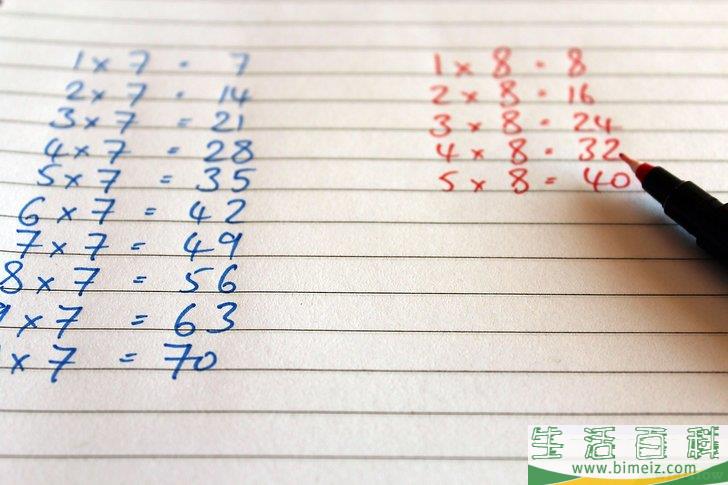 1 × 7 = 7
2 × 7 = 14
3 × 7 = 21
4 × 7 = 28
5 × 7 = 35
6 × 7 = 42
7 × 7 = 49
8 × 7 = 56
9 × 7 = 63
× 7 = 70
1 × 8 = 8
2 × 8 = 16
3 × 8 = 24
4 × 8 = 32
5 × 8 = 40
生活百科
www.bimeiz.com